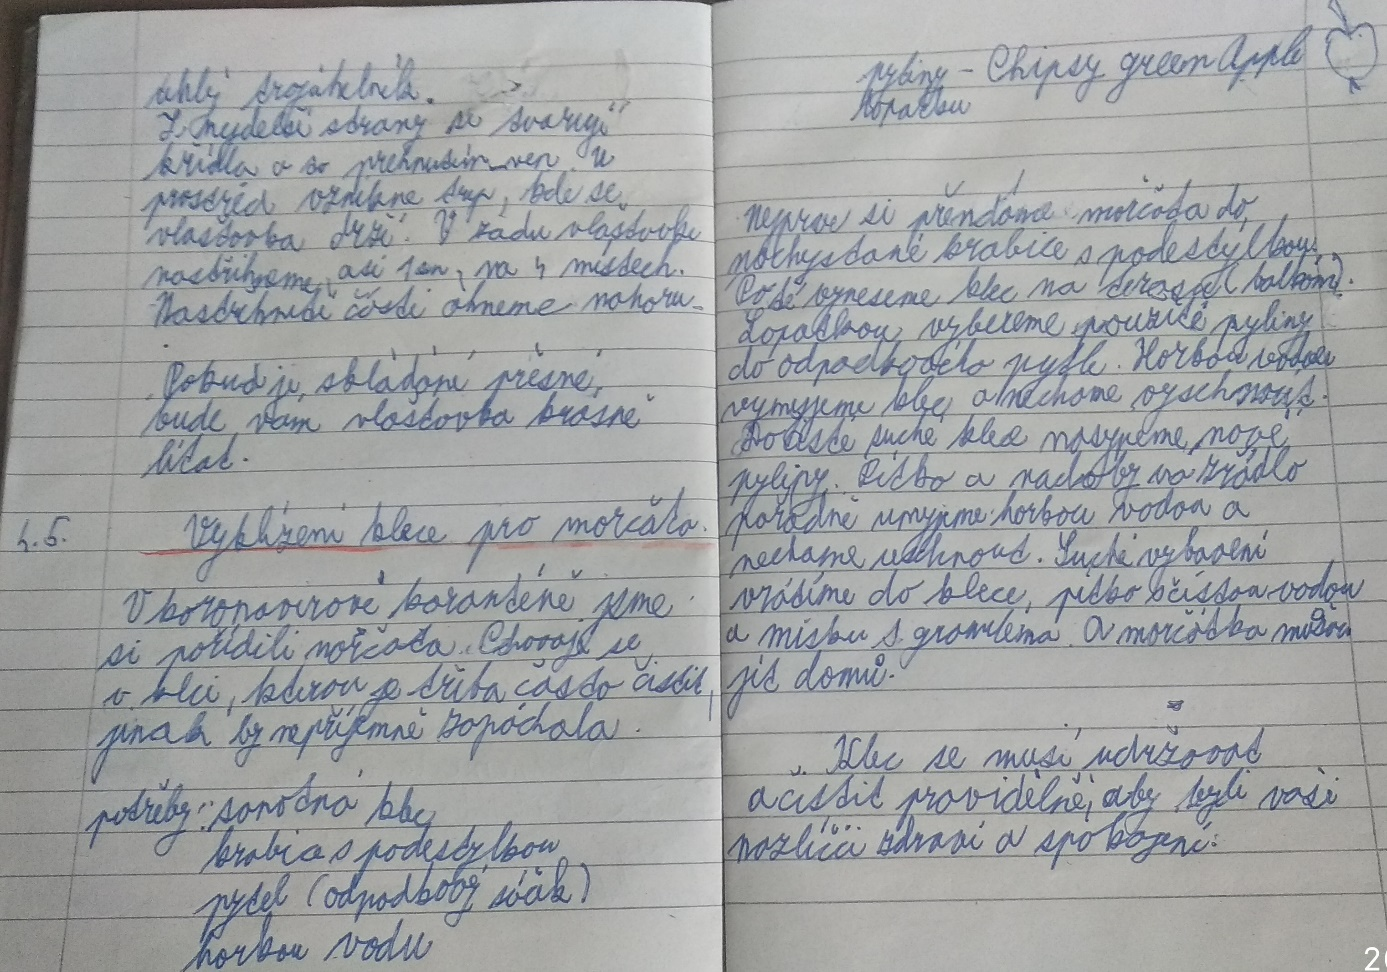 úhlý trojúhelník.
Z nydelší strany se tvaruji
křídla a to přehnutím ven. U
prostřed vznikne trup, kde se
vlaštovka drží. V zádu vlaštovku
nastřihneme, asi 1cm, na 4 místech.
Nastřihnuté části ohneme nahoru.
Pokud je, skládání přesné,
bude vám vlaštovka krásně
lítat.
4.5. Vyklízení klece pro morčata.
V koronavirové karanténě jsme
si pořídili morčata. Chovají se
v kleci, kterou je třeba často čistit,
jinak by nepříjemně zapáchala.
potřeby: samotná klec
krabice s podestýlkou
pytel (odpadkový sáčk)
horkou vodu
pyliny - Chipsy green Apple
lopatku
Neprve si přendáme morčata do
nachystané krabice s podestýlkou.
Poté vyneseme klec na terasu (balkon).
Lopatkou vybereme použité pyliny
do odpadkového pytle. Horkou vodou
vymyjeme klec a necháme vyschnout.
Do čisté suché klece nasypeme nové
pyliny. Pítko a nádoby na žrádlo
pořádně umyjeme horkou vodou a
necháme uschnout. Suché vybavení
vrátíme do klece, pítko s čistou vodou
a misku s granulema. A morčátka můžou
jít domů.
Klec se musí udržovat
a čistit pravidelně, aby byli vaši
mazlíčci zdraví a spokojení.